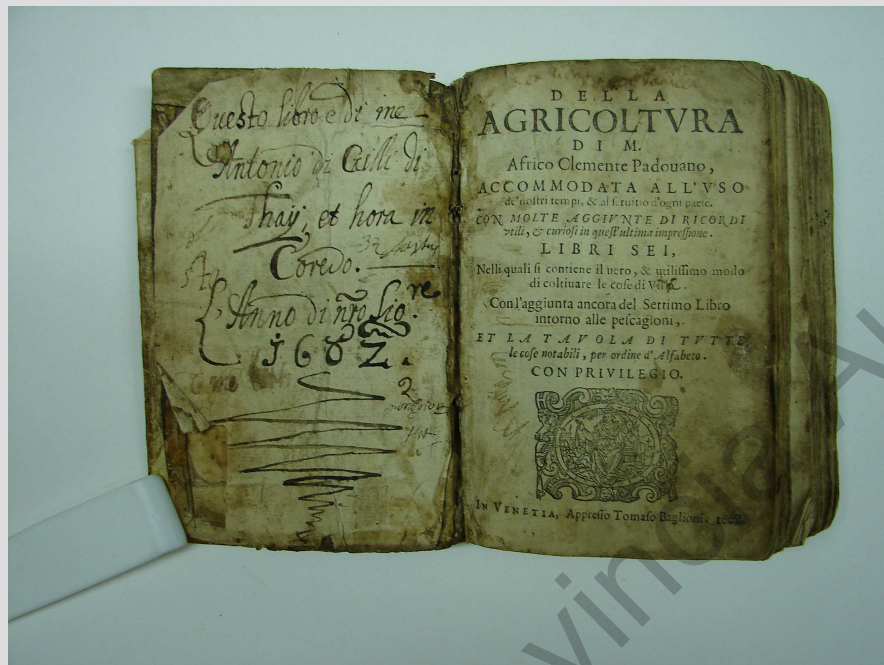 Questo libro è di me
Antonio di Gilli di
Thaÿ, et hora in
Coredo.
Anno di nro Sigre.
1682.
2
DELLA
AGRICOLTVRA
DI M.
Africo Clemente Padouano,
ACCOMMODATA ALL'VSO
de' nostri tempi, & al seruitio d'ogni paese.
CON MOLTE AGGIVNTE DI RICORDI
vtili, & curiosi in quest'ultima impressione.
LIBRI SEI,
Nelli quali si contiene il uero, & utilissimo modo
di coltiuare le cose di Villa.
Con l'aggiunta ancora del Settimo Libro
intorno alle pescagioni,
ET LA TAVOLA DI TVTTE
le cose notabili, per ordine d'Alfabeto.
CON PRIVILEGIO.
IN VENETIA, Appresso Tomaso Baglioni.
vincia A